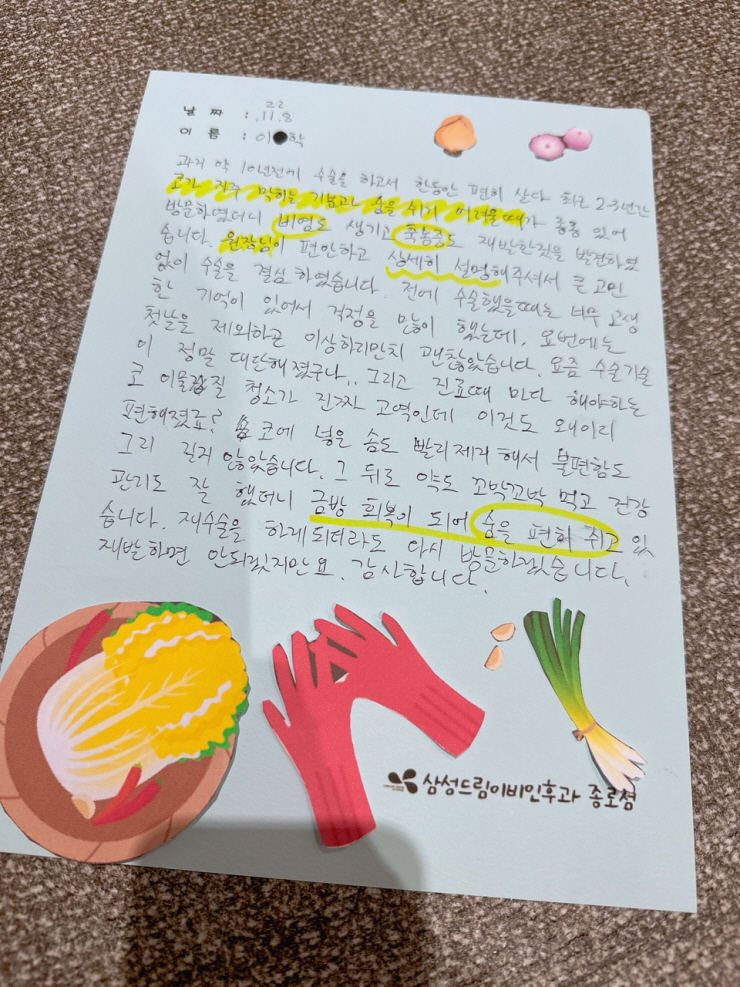 날 짜 : 22. 11. 8
이 름 : 이●학
과거 약 10년전에 수술을 하고서 한동안 편히 살다 최근 2-3년간
코가 자주 막히는 기분과 숨을 쉬기 어려울때가 종종 있어
방문하였더니 비염도 생기고 축농증도 재발한것을 발견하였
습니다. 원장님이 편안하고 상세히 설명해주셔서 큰 고민
없이 수술을 결심하였습니다. 전에 수술했을때는 너무 고생
한 기억이 있어서 걱정을 많이 했는데, 요번에는
첫날을 제외하곤 이상하리만치 괜찮았습니다. 요즘 수술기술
이 정말 대단해졌구나.. 그리고 진료때 마다 해야하는
코 이물질 청소가 진짜 고역인데 이것도 왜이리
편해졌죠? 코에 넣은 솜도 빨리제거 해서 불편함도
그리 길지 않았습니다. 그 뒤로 약도 꼬박꼬박 먹고 건강
관리도 잘 했더니 금방 회복이 되어 숨을 편히 쉬고 있
습니다. 재수술을 하게되더라도 다시 방문하겠습니다.
재발하면 안되겠지만요. 감사합니다.
삼성드림이비인후과 종로점